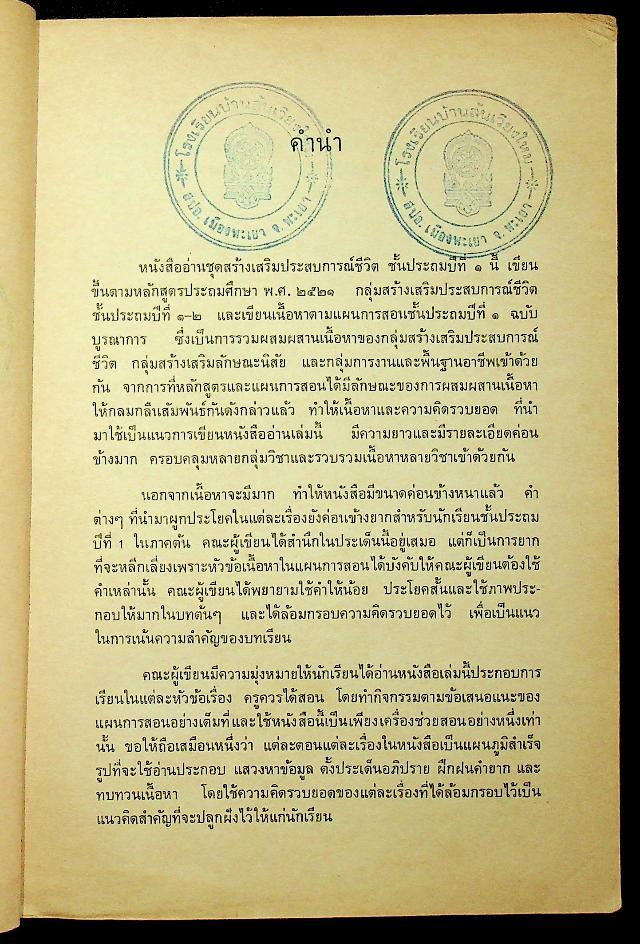 โรงเรียนบ้านสันเวียงใหม่
สปอ. เมืองพะเยา จ. พะเยา
คำนำ
โรงเรียนบ้านสันเวียงใหม่
สปอ. เมืองพะเยา จ. พะเยา
หนังสืออ่านชุดสร้างเสริมประสบการณ์ชีวิต ชั้นประถมปีที่ ๑ นี้ เขียน
ขึ้นตามหลักสูตรประถมศึกษา พ.ศ. ๒๕๒๑ กลุ่มสร้างเสริมประสบการณ์ชีวิต
ชั้นประถมปีที่ ๑-๒ และเขียนเนื้อหาตามแผนการสอนชั้นประถมปีที่ ๑ ฉบับ
บูรณาการ ซึ่งเป็นการรวมผสมผสานเนื้อหาของกลุ่มสร้างเสริมประสบการณ์
ชีวิต กลุ่มสร้างเสริมลักษณะนิสัย และกลุ่มการงานและพื้นฐานอาชีพเข้าด้วย
กัน จากการที่หลักสูตรและแผนการสอนได้มีลักษณะของการผสมผสานเนื้อหา
ให้กลมกลืนสัมพันธ์กันดังกล่าวแล้ว ทำให้เนื้อหาและความคิดรวบยอด ที่นำ
มาใช้เป็นแนวการเขียนหนังสืออ่านเล่มนี้ มีความยาวและมีรายละเอียดค่อน
ข้างมาก ครอบคลุมหลายกลุ่มวิชาและรวบรวมเนื้อหาหลายวิชาเข้าด้วยกัน
นอกจากเนื้อหาจะมีมาก ทำให้หนังสือมีขนาดค่อนข้างหนาแล้ว คำ
ต่างๆ ที่นำมาผูกประโยคในแต่ละเรื่องยังค่อนข้างยากสำหรับนักเรียนชั้นประถม
ปีที่ 1 ในภาคต้น คณะผู้เขียนได้สำนึกในประเด็นนี้อยู่เสมอ แต่ก็เป็นการยาก
ที่จะหลีกเลี่ยงเพราะหัวข้อเนื้อหาในแผนการสอนได้บังคับให้คณะผู้เขียนต้องใช้
คำเหล่านั้น คณะผู้เขียนได้พยายามใช้คำให้น้อย ประโยคสั้นและใช้ภาพประ-
กอบให้มากในบทต้นๆ และได้ล้อมกรอบความคิดรวบยอดไว้ เพื่อเป็นแนว
ในการเน้นความสำคัญของบทเรียน
คณะผู้เขียนมีความมุ่งหมายให้นักเรียนได้อ่านหนังสือเล่มนี้ประกอบการ
เรียนในแต่ละหัวข้อเรื่อง ครูควรได้สอน โดยทำกิจกรรมตามข้อเสนอแนะของ
แผนการสอนอย่างเต็มที่และใช้หนังสือนี้เป็นเพียงเครื่องช่วยสอนอย่างหนึ่งเท่า
นั้น ขอให้ถือเสมือนหนึ่งว่า แต่ละตอนแต่ละเรื่องในหนังสือเป็นแผนภูมิสำเร็จ
รูปที่จะใช้อ่านประกอบ แสวงหาข้อมูล ตั้งประเด็นอภิปราย ฝึกฝนคำยาก และ
ทบทวนเนื้อหา โดยใช้ความคิดรวบยอดของแต่ละเรื่องที่ได้ล้อมกรอบไว้เป็น
แนวคิดสำคัญที่จะปลูกฝังไว้ให้แก่นักเรียน